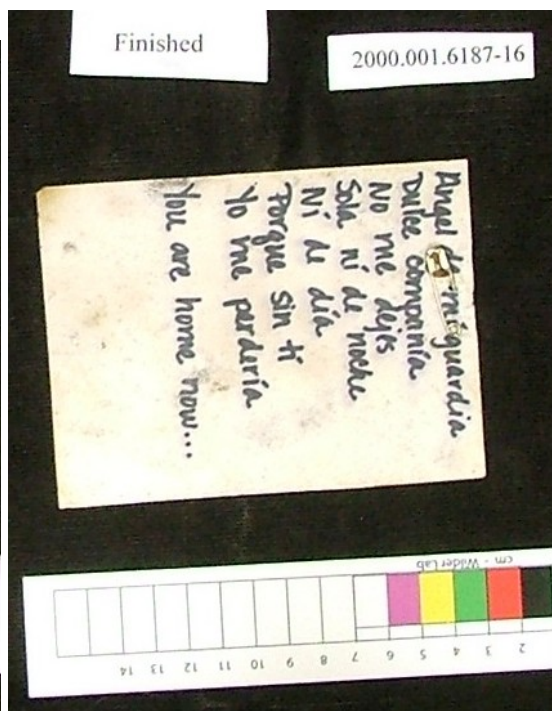 Finished
2000.001.6187-16
Angel de mi guardia
Dulce compania
No me dejes
Sola ni de noche
Ni de día
Porque sin ti
Yo me perdería
You are home now...
cm - Wilder Lab
14 13 12 11 10 9 8 7 6 5 4 3 2